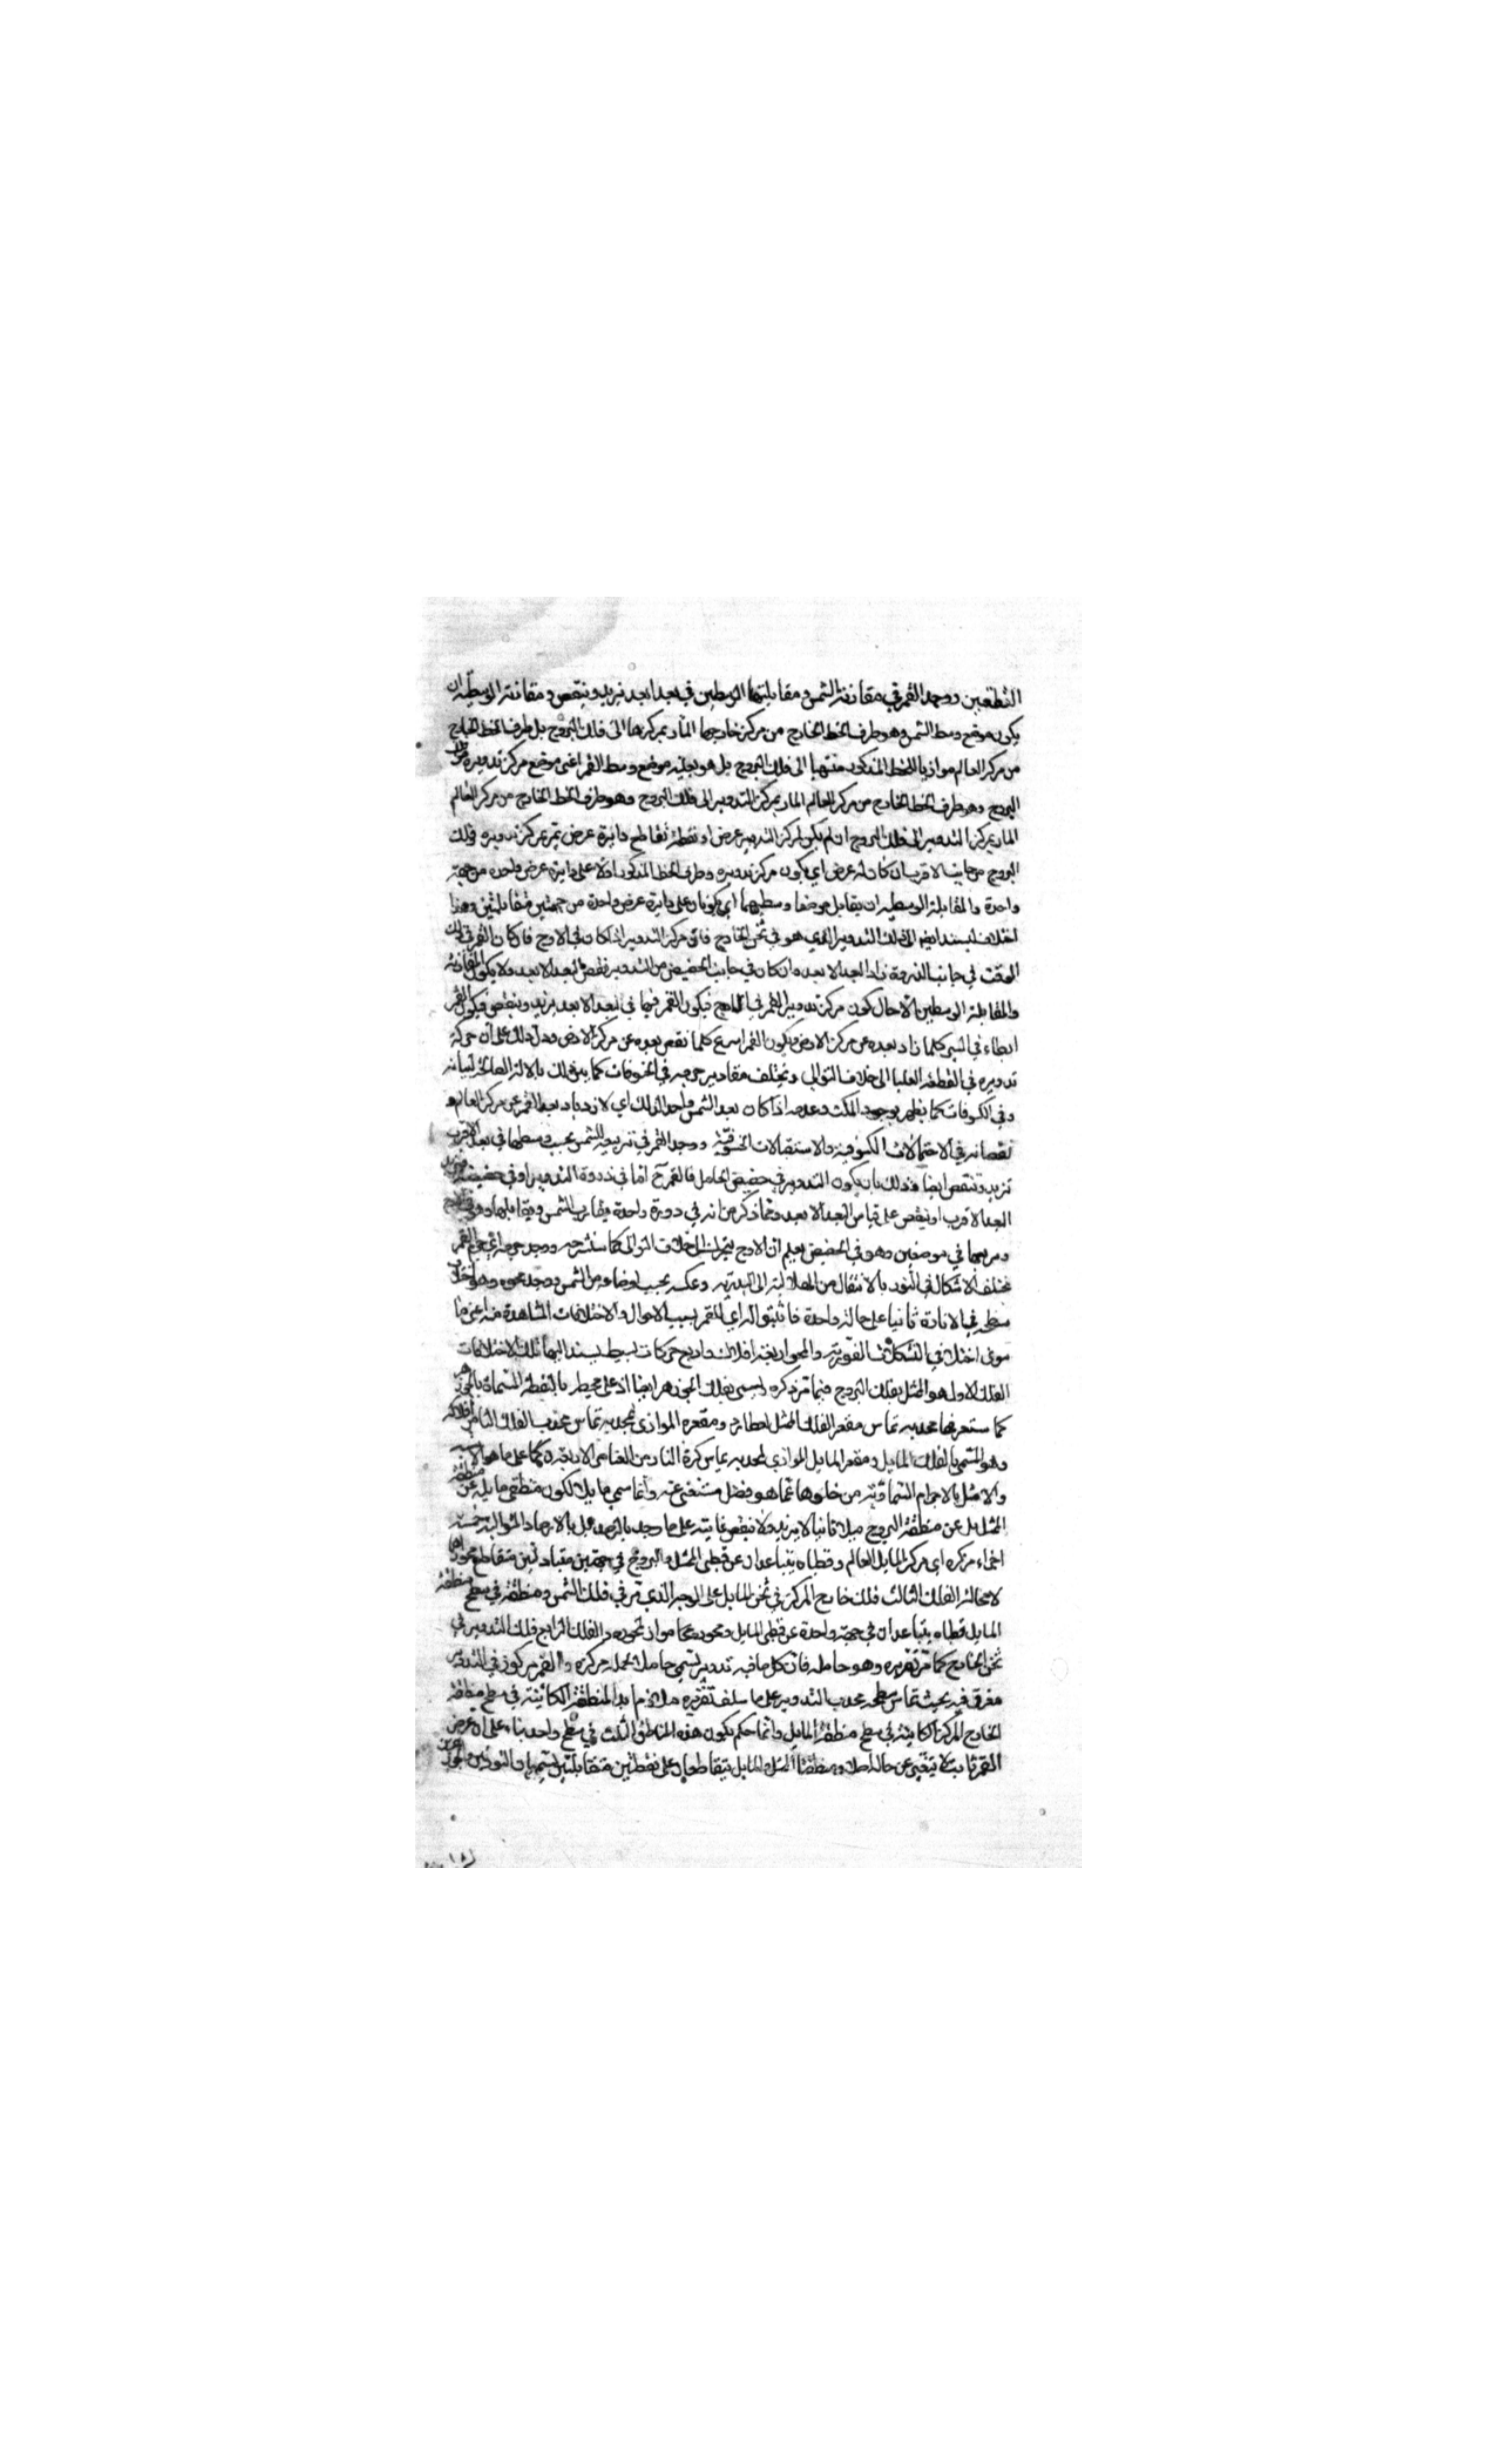 النطقتين ووجد القمر في مقارنة الشمس ومقابلتها الوسطيتين في بعد ابعد يزيد وينقص ومقارنة الوسطية ان
يكون موضع وسط الشمس وهو طرف الخط الخارج من مركز خارجها المار بمركزها الى فلك البروج بل طرف الخط الخارج
من مركز العالم موازيا للخط المذكور منتهيا الى فلك البروج بل هو بعينه موضع وسط القمر اعني موضع مركز تدويره من
البروج وهو طرف الخط الخارج من مركز العالم المار بمركز التدوير الى فلك البروج وهو طرف الخط الخارج من مركز العالم
المار بمركز التدوير الى فلك البروج ان لم يكن لمركز التدوير عرض او نقطة تقاطع دايرة عرض تمر بمركز تدويره وفلك
البروج من جانب الاقرب ان كان له عرض اي يكون مركز تدويره وطرف الخط المذكور اولا على دايرة عرض واحدة من جهة
واحدة والمقابلة الوسطية ان يتقابل موضعا وسطيهما اي يكونان على دايرة عرض واحدة من جهتين متقابلتين وهذا
اختلاف يستند اليه الى فلك التدوير الذي هو في ثخن الخارج فان مركز التدوير اذا كان في الاوج فان كان القمر في ذلك
الوقت في جانب الذروة زاد البعد الابعد وان كان في جانب الحضيض من التدوير نقص البعد الابعد ولا يكون المقارنة
والمقابلة الوسطيتين الا حال كون مركز تدوير القمر في الاوج فيكون القمر فيهما في البعد الابعد يزيد وينقص فيكون القمر
ابطاء في السير كلما زاد بعده عن مركز الارض ويكون القمر اسرع كلما نقص بعده عن مركز الارض ودل ذلك على ان حركة
تدويره في القطعة العليا الى خلاف التوالي ويختلف مقادير جرمه في الخسوفات كما يتبين ذلك بالالة الصالحة لبيانه
وفي الكسوفات كما يظهر بوجود المكث وعدمه اذا كان بعد الشمس واحدا لذلك اي لازدياد بعد القمر عن مركز العالم و
نقصانه في الاجتماعات الكسوفية والاستقبالات الخسوفية ووجد القمر في تربيعه للشمس بحسب وسطهما في بعد الاقرب
تزيد وتنقص ايضا وذلك بان يكون التدوير في حضيض الحامل فالقمر ح اما في ذروة التدوير او في حضيضه
البعد الاقرب او ينقص على قياس البعد الابعد ومما ذكر من انه في دورة واحدة يقارن الشمس ويقابلها وهو في الاوج
ومربعها في موضعين وهو في الحضيض يعلم ان الاوج يتحرك الى خلاف التوالي كما سنشرحه ووجد جرمه اي جرم القمر
مختلف الاشكال في النور بالانتقال من الهلالية الى البدرية وعكسه بحسب اوضاعه من الشمس ووجد محوه وهو اختلاف
سطحه في الانارة ثابتا على حالة واحدة فاثبتوا الراي للقمر بسبب الاحوال والاختلافات المشاهدة منه اعني ما
سوى اختلافي التشكلات النورية والمحو اربعة افلاك واربع حركات بسيطة يستند اليها تلك الاختلافات
الفلك الاول هو الممثل بفلك البروج فيما مر ذكره ويسمى بفلك الجوزهر ايضا اذ على محيطه بالنقطة المسماة بالجوزهر
كما ستعرفها محدبه تماس مقعر الفلك الممثل لعطارد ومقعره الموازي لمحدبه تماس محدب الفلك الثاني من افلاكه
وهو المسمى بالفلك المايل ومقعر المايل الموازي لمحدبه يماس كرة النار من العناصر الاربعة
والامثل بالاجرام السماوية من خلوها عما هو فضل مستغنى عنه وانما سمي مايلا لكون منطقته مايلة عن منطقة
الممثل بل عن منطقة البروج ميلا ثابتا لا يزيد ولا ينقص غايته على ما وجد بالرصد بل بالارصاد المتوالية خمسة
اجزاء مركزه اي مركز المايل العالم وقطباه يتباعدان عن قطبي الممثل والبروج في جهتين متبادلتين متقاطع محوراهما
لا محالة الفلك الثالث فلك خارج المركز في ثخن المايل على الوجه الذي مر في فلك الشمس ومنطقته في سطح منطقة
المايل قطباه يتباعدان في جهة واحدة عن قطبي المايل ومحوره مواز لمحوره والفلك الرابع فلك التدوير في
ثخن الخارج كما مر تقريره وهو حامله فان كل ما فيه تدوير يسمى حاملا لحمله مركزه والقمر مركوز في التدوير
مغرق فيه بحيث تماس سطحه محدب التدوير على ما سلف تقريره ملازما ابدا لمنطقته الكاينة في سطح منطقة
الخارج المركز الكاينة في سطح منطقة المايل وانما حكم بكون هذه المناطق الثلث في سطح واحد بناء على ان عرض
القمر ثابت لا يتغير عن حاله اصلا ومنطقتا الممثل والمايل يتقاطعان على نقطتين متقابلتين تسميان